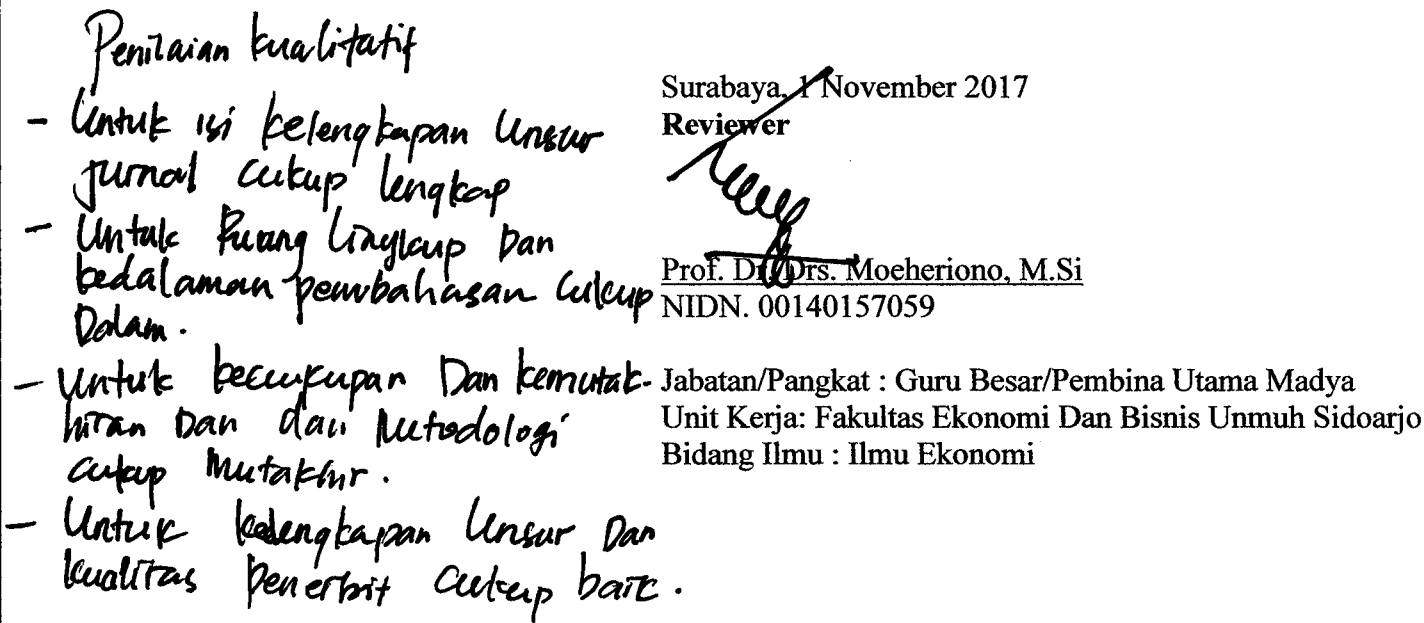 Penilaian kualitatif
- Untuk isi kelengkapan Unsur
jurnal cukup lengkap
- Untuk Ruang Lingkup Dan
kedalaman pembahasan cukup
Dalam.
- Untuk kecukupan Dan kemutak-
hiran Dan dari Metodologi
cukup Mutakhir.
- Untuk kelengkapan Unsur Dan
kualitas Penerbit cukup baik.
Surabaya, 1 November 2017
Reviewer
Prof. Dr. Drs. Moeheriono, M.Si
NIDN. 00140157059
Jabatan/Pangkat : Guru Besar/Pembina Utama Madya
Unit Kerja: Fakultas Ekonomi Dan Bisnis Unmuh Sidoarjo
Bidang Ilmu : Ilmu Ekonomi